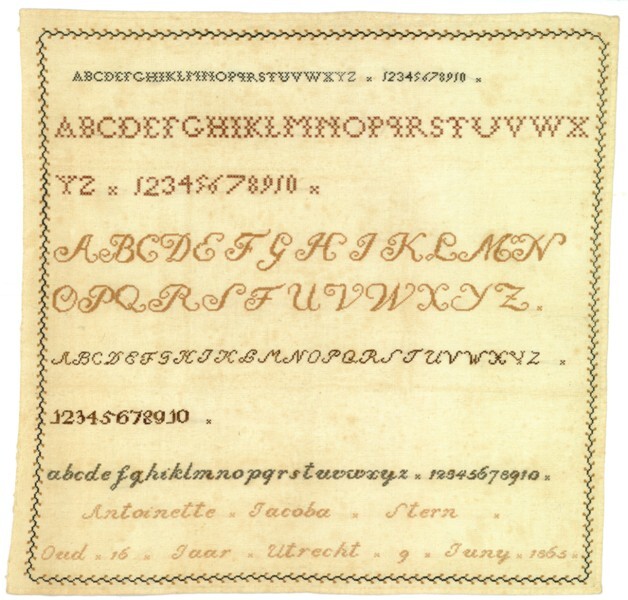 ABCDEFGHIKLMNOPQRSTUVWXYZ × 12345678910 ×
ABCDEFGHIKLMNOPQRSTUVWX
YZ × 12345678910 ×
ABCDEFGHIKLMN
OPQRSTUVWXYZ ×
ABCDEFGHIKLMNOPQRSTUVWXYZ ×
12345678910 ×
abcdefghiklmnopqrstuvwxyz × 12345678910 ×
Antoinette × Jacoba × Stern ×
Oud × 16 × Jaar × Utrecht × 9 × Juny × 1865 ×